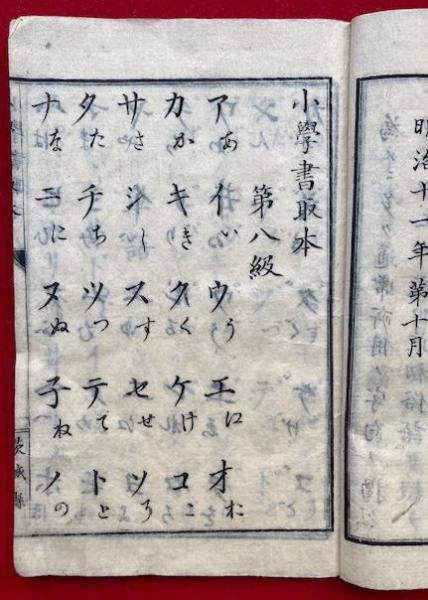 明治十一年第十月
小學書取本
第八級
アあ イい ウう エに オお
カか キき クく ケけ コこ
サさ シし スす セせ ソそ
タた チち ツつ テて トと
ナな ニに ヌぬ 子ね ノの
茨城縣